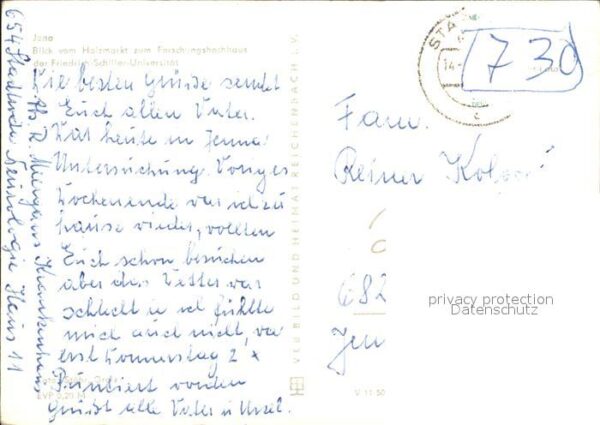 Jena
Blick vom Holzmarkt zum Forschungshochhaus
der Friedrich-Schiller-Universität
Die besten Grüße sendet
Euch allen Vater.
War heute in Jenna
Untersuchung. Voriges
Wochenende war ich zu
hause wieder, wollten
Euch schon besuchen
aber das Wetter war
schlecht u. ich fühlte
mich auch nicht, war
erst Donnerstag 2 x
Punktiert worden
Grüßt alle Vater u Ursel.
654 Stadtroda Neurologie Haus 11
Krankenhaus
VEB BILD UND HEIMAT REICHENBACH i. V.
EVP 0,20 M
V 11 50
STA
14.
730
Fam.
Reiner
682
Jen
privacy protection
Datenschutz